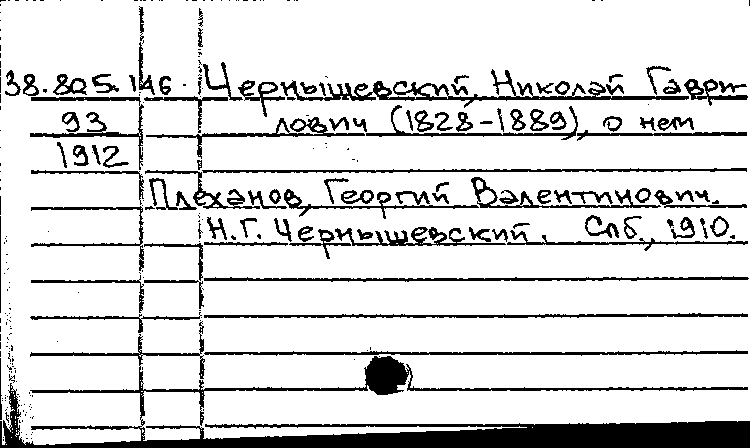 38.805.146. Чернышевский, Николай Гаври-
93 лович (1828-1889), о нем
1912
Плеханов, Георгий Валентинович.
Н.Г. Чернышевский. Спб., 1910.